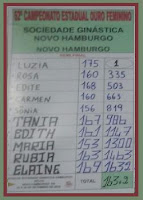 52º CAMPEONATO ESTADUAL OURO FEMININO
SOCIEDADE GINÁSTICA
NOVO HAMBURGO
NOVO HAMBURGO
LUZIA 175 1
ROSA 160 335
EDITE 168 503
CARMEN 160 663
SONIA 156 819
TANIA 167 986
EDITH 161 1147
MARIA 153 1300
RUBIA 163 1463
ELAINE 169 1632
TOTAL